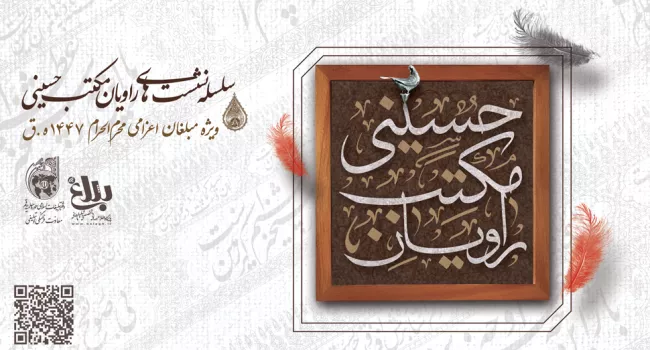 سلسله نشست های راویان مکتب حسینی
ویژه مبلغان اعزامی محرم الحرام ۱۴۴۷ ه.ق
حسینی
مکتب
راویان
بلاغ